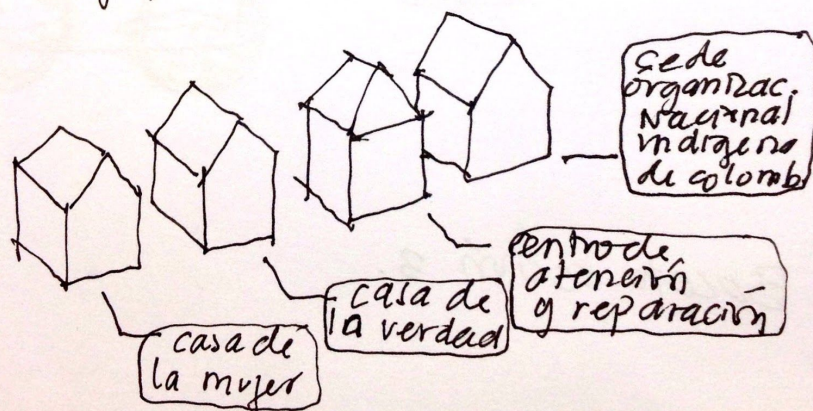 casa de
la mujer
casa de
la verdad
centro de
atención
y reparación
Cede
organizac.
Nacional
indigena
de colomb